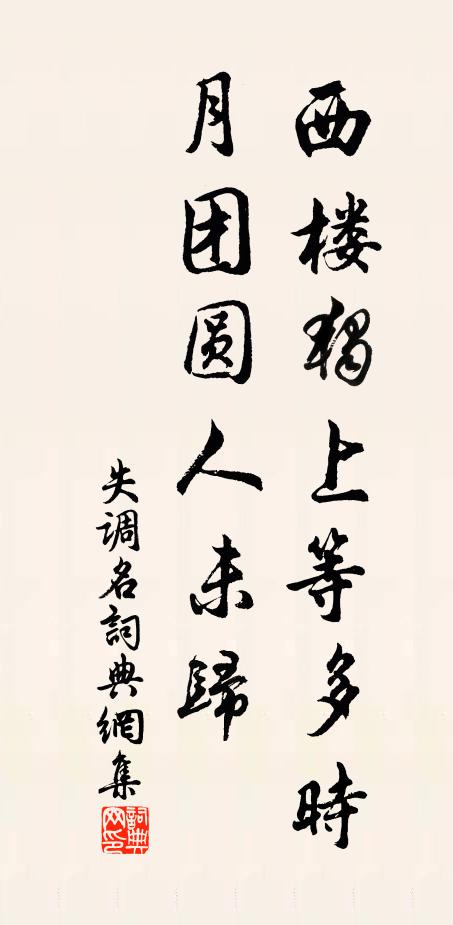 西楼獨上等多時
月团圆人未歸
失調名詞典網集
詞典网印